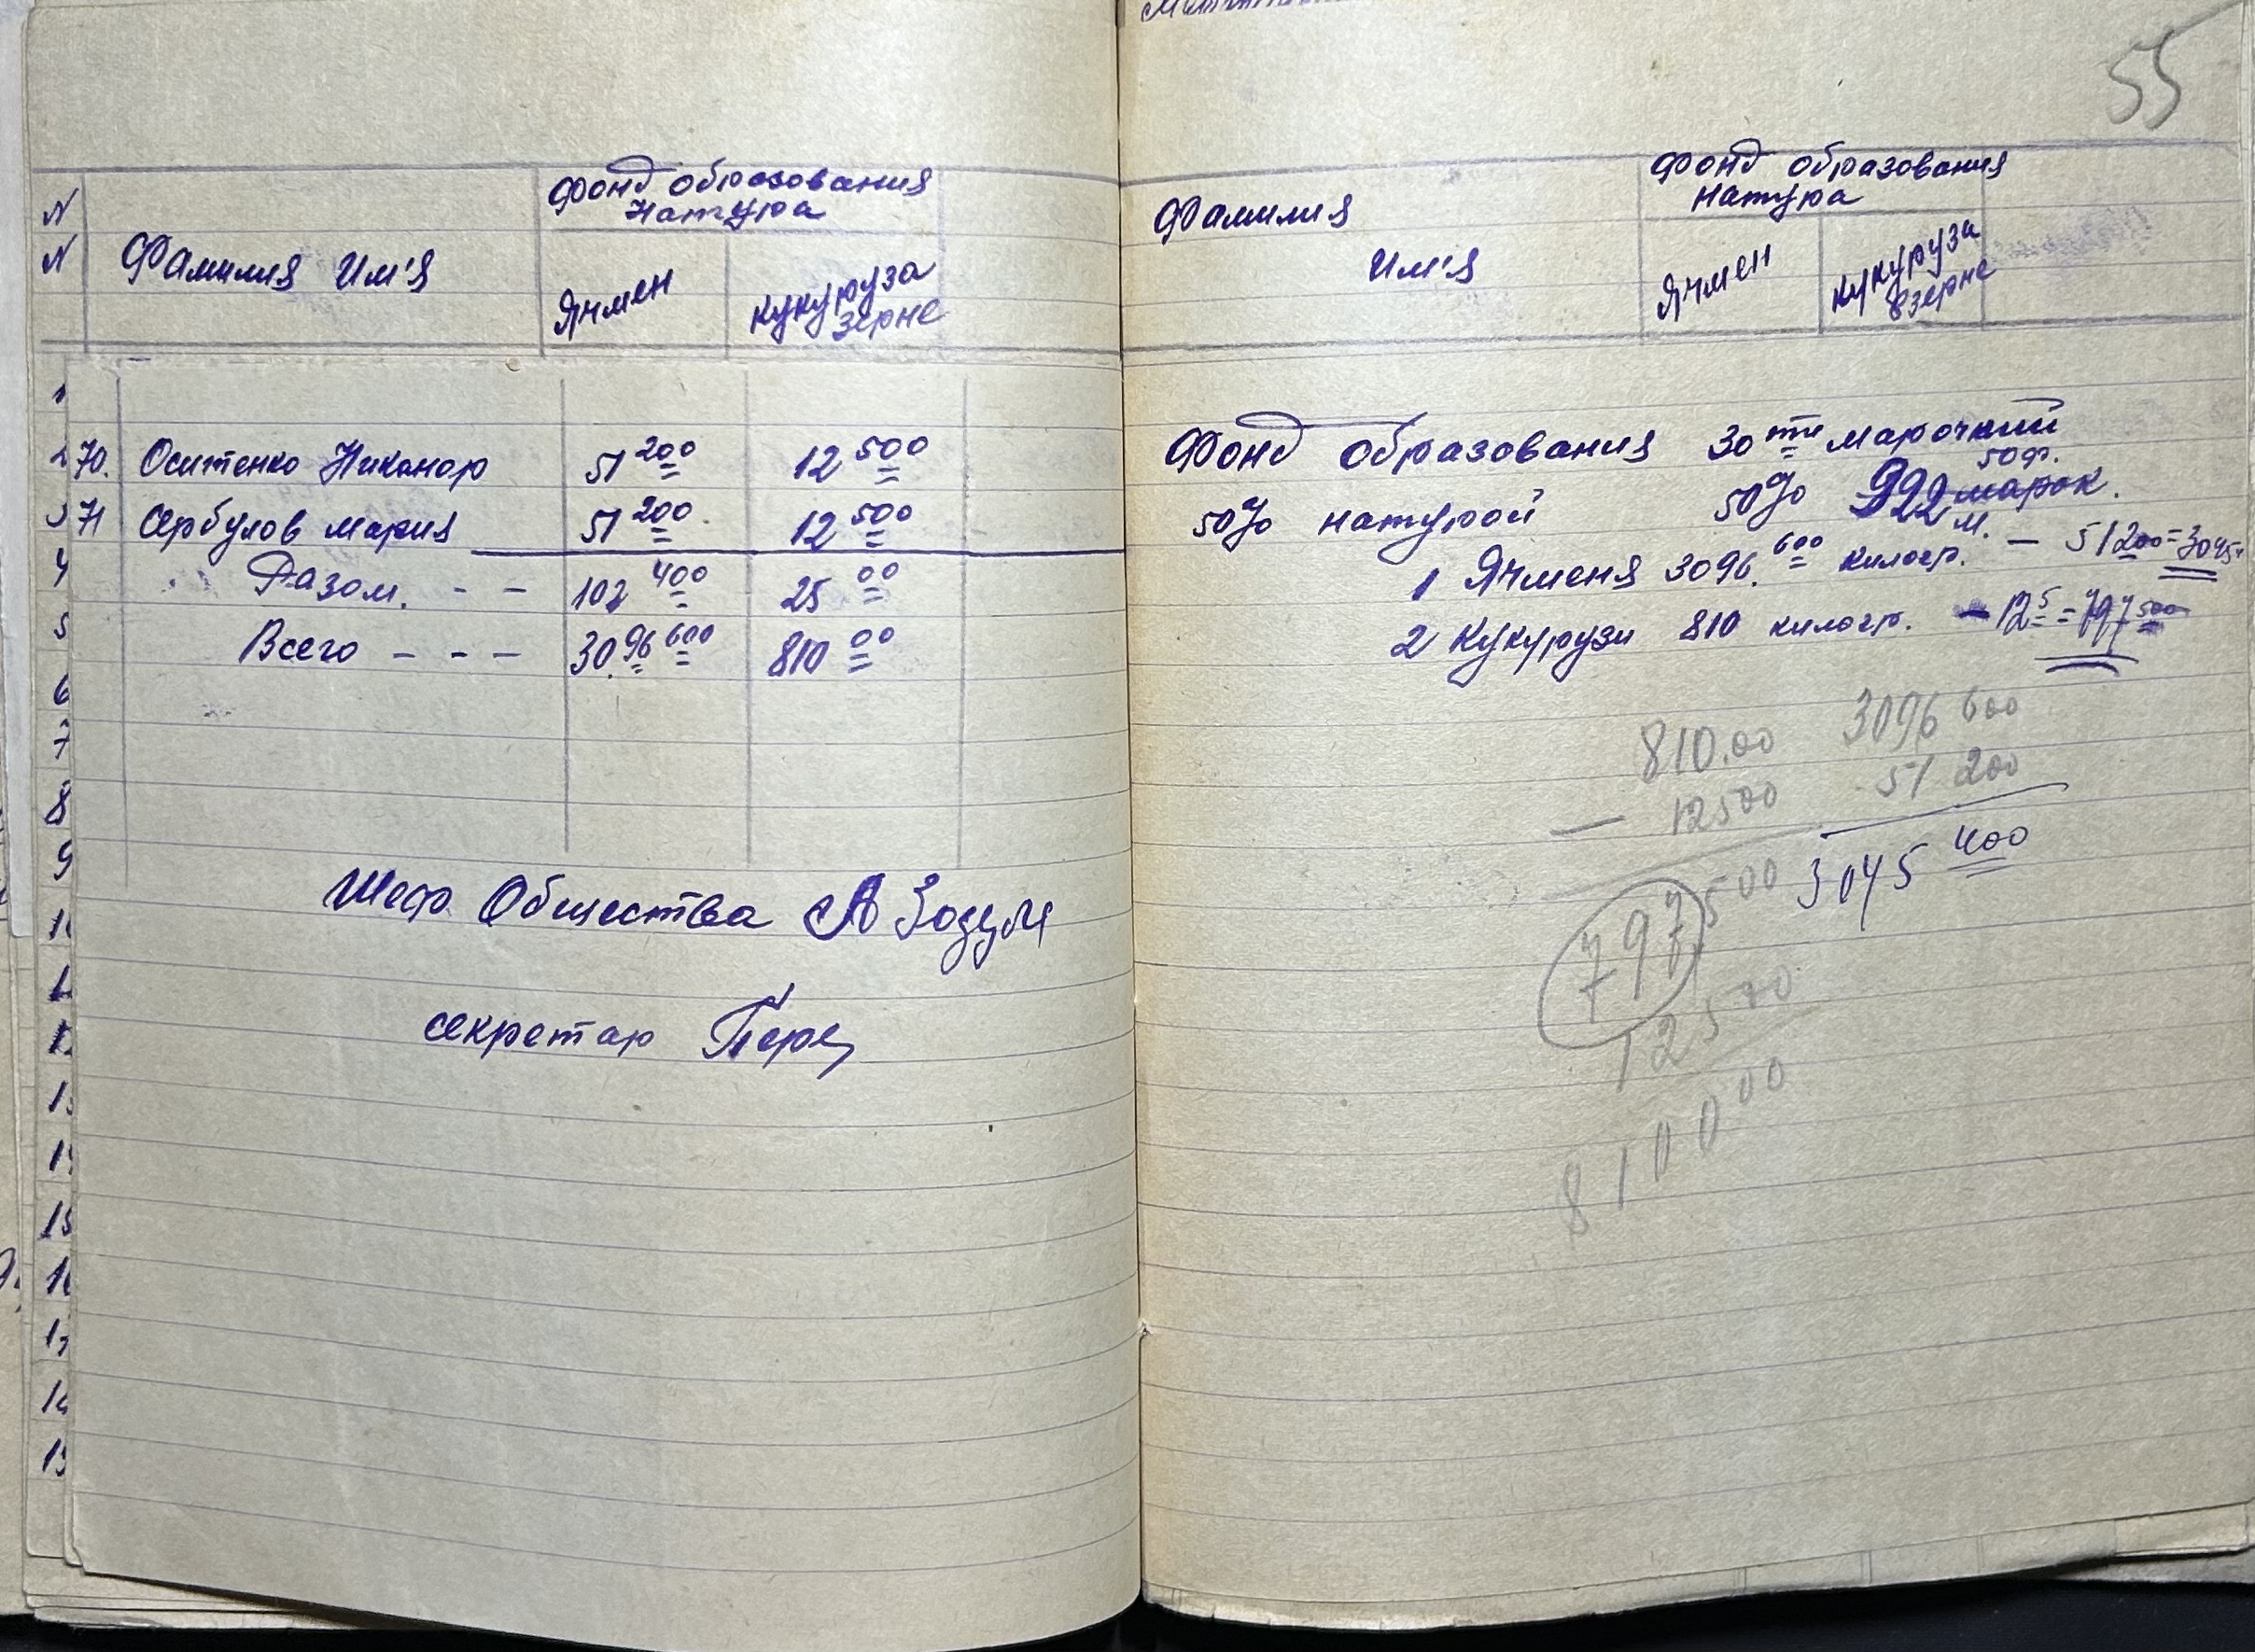 N
N
Фамилия Им'я
Фонд образования
Натура
Ячмен
кукуруза
зерне
70. Оситенко Никанор 51 200 12 500
71 Сербулов Мария 51 200 12 500
Разом. - - 102 400 25 00
Всего - - - 30.96 600 810 00
4
5
6
7
8
9
Шеф Общества
секретар
55
Фамилия
Им'я
Фонд образования
натура
Ячмен
кукуруза
взерне
Фонд образования 30ти марочкий
50% натурой 50% 922 марок. 50ф.
м.
1 Ячменя 3096. 600 килогр. – 51200=3045
2 Кукурузи 810 килогр. - 12 5 = 797 500
810.00 3096 600
— 12500 51 200
797,500 3045 400
12500
810000